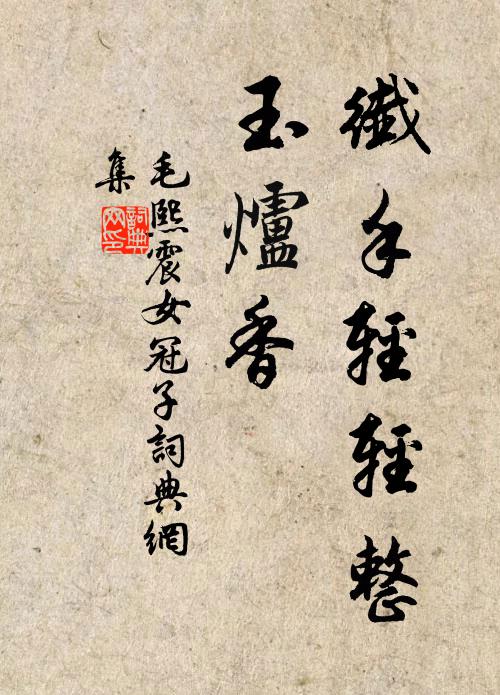 纖手輕輕整
玉爐香
毛熙震女冠子詞典網
集
詞典网印